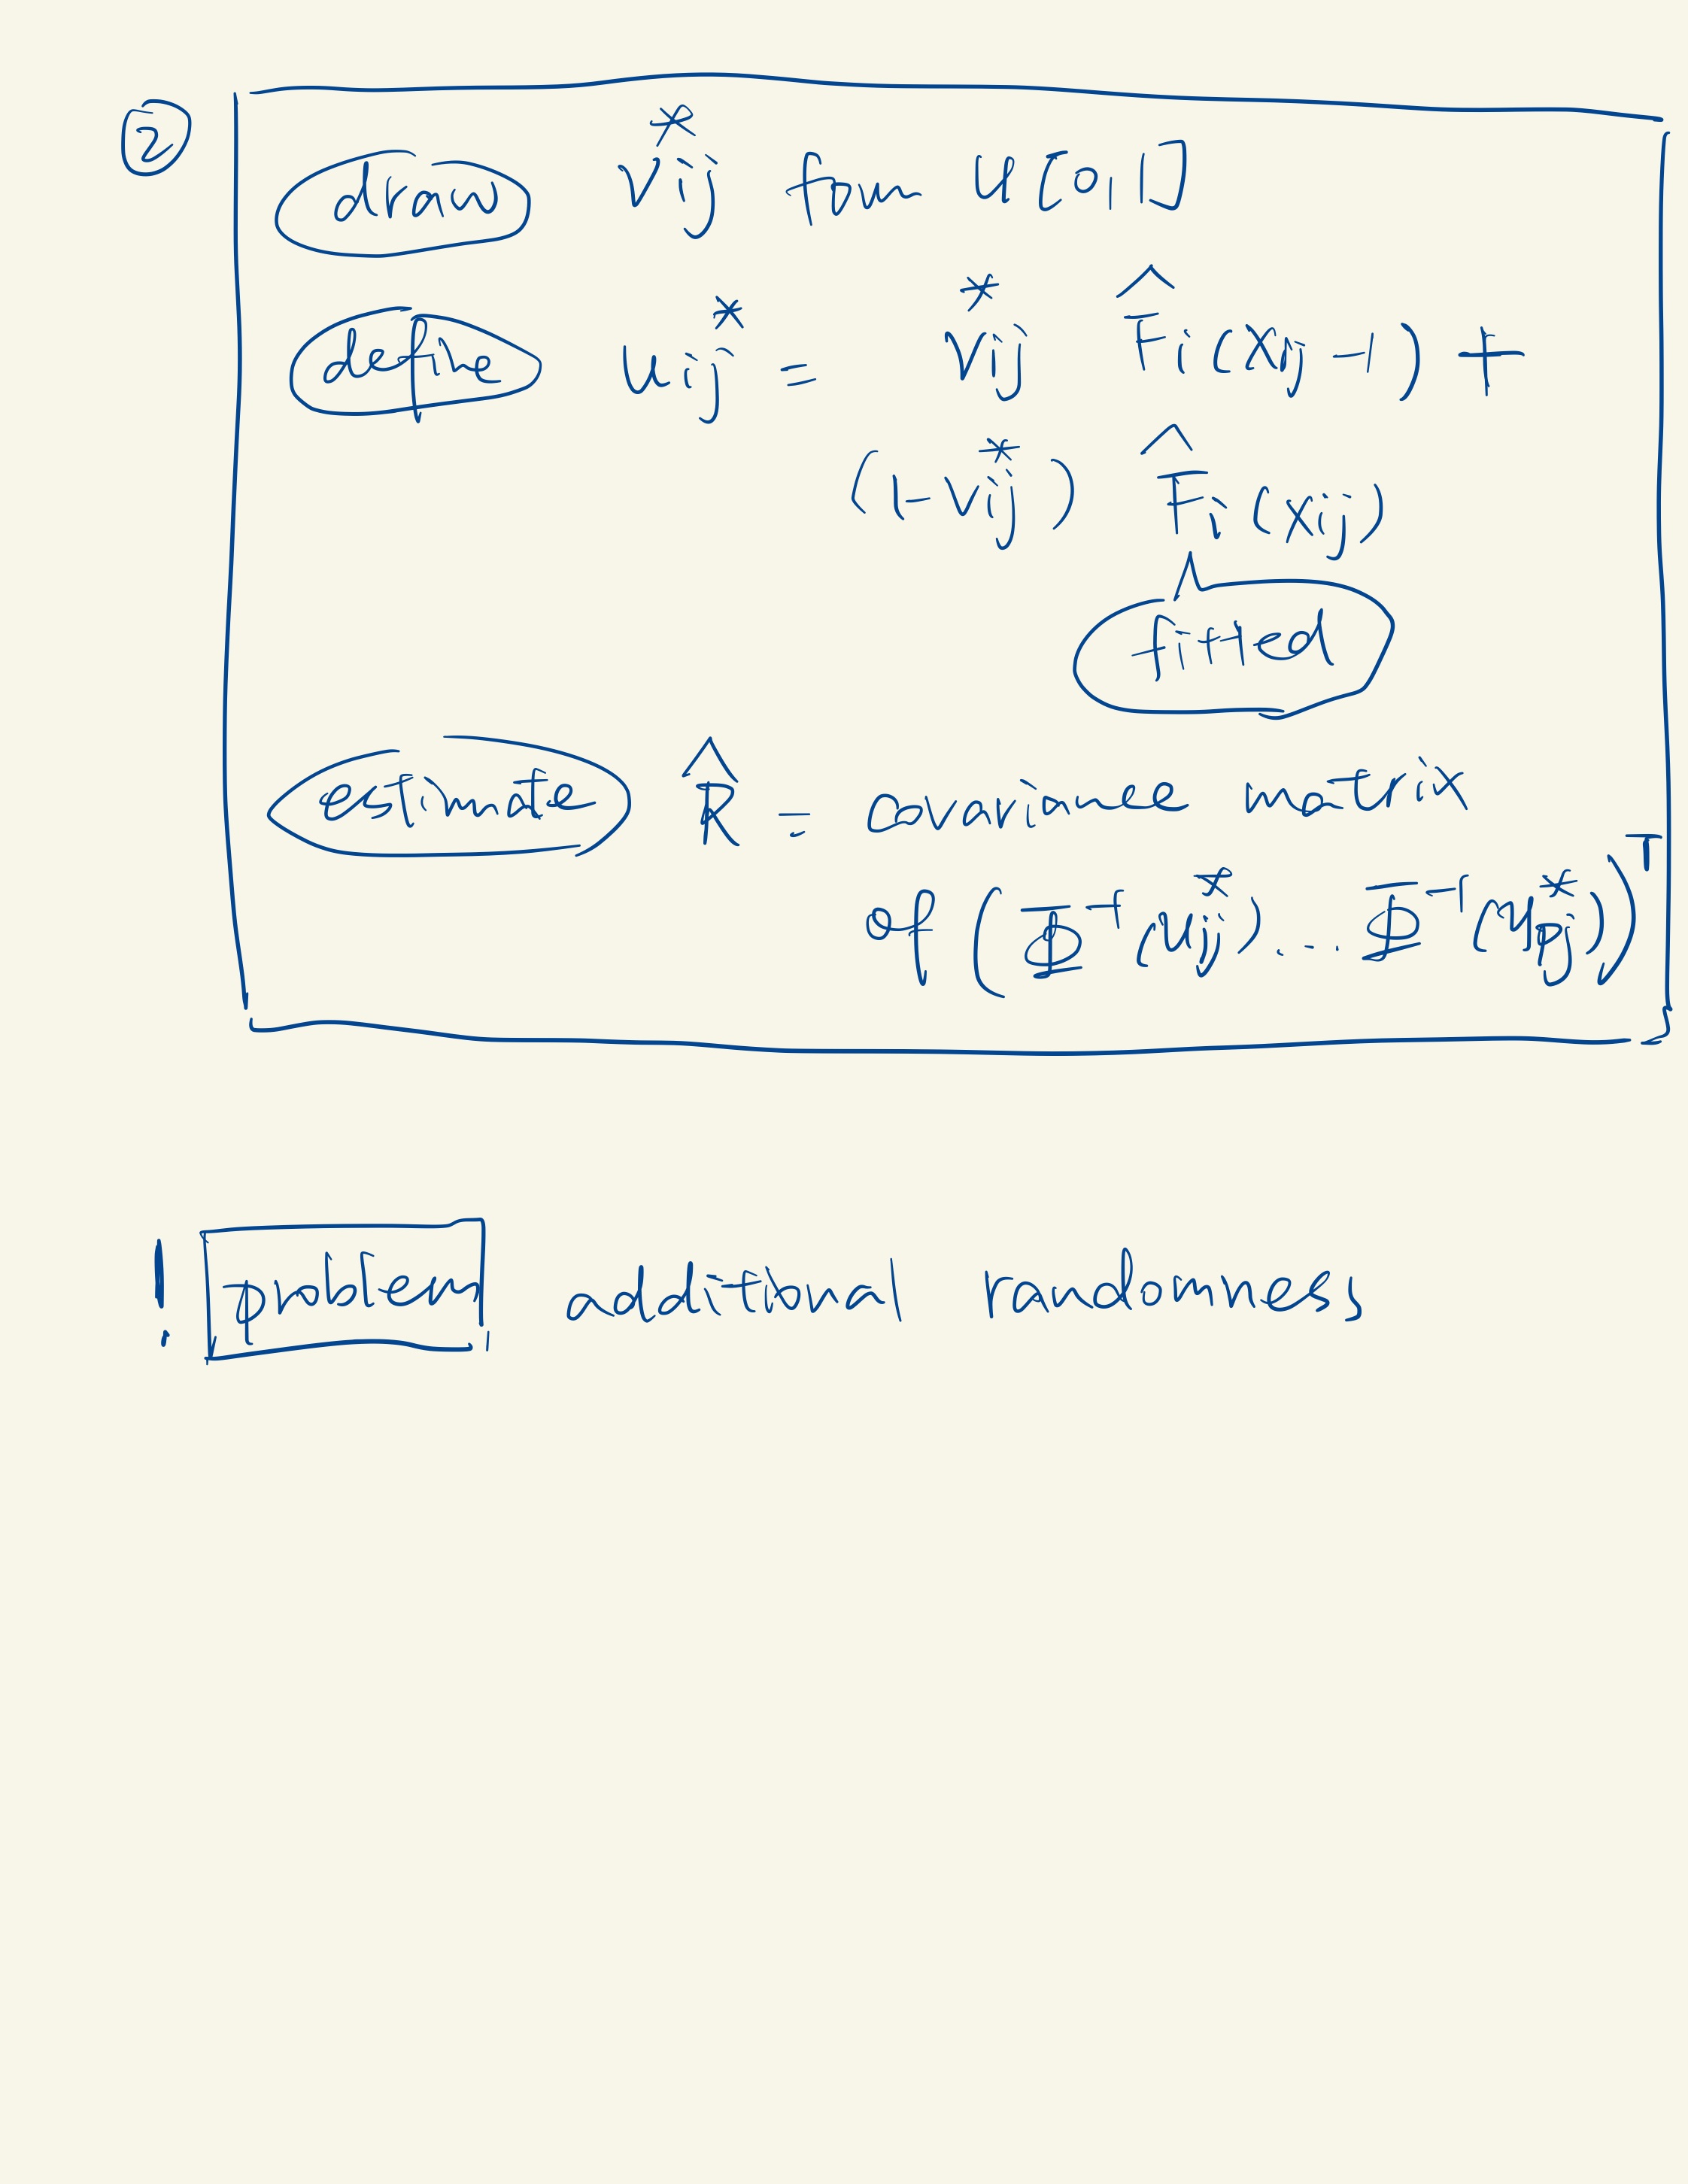 ②
draw vij* from U[0,1]
define uij* = vij* F̂i(xij-1) +
(1-vij*) F̂i(xij)
fitted
estimate R̂ = covariance matrix
of (Φ⁻¹(u1j*)... Φ⁻¹(upj*))ᵀ
! problem additional randomness